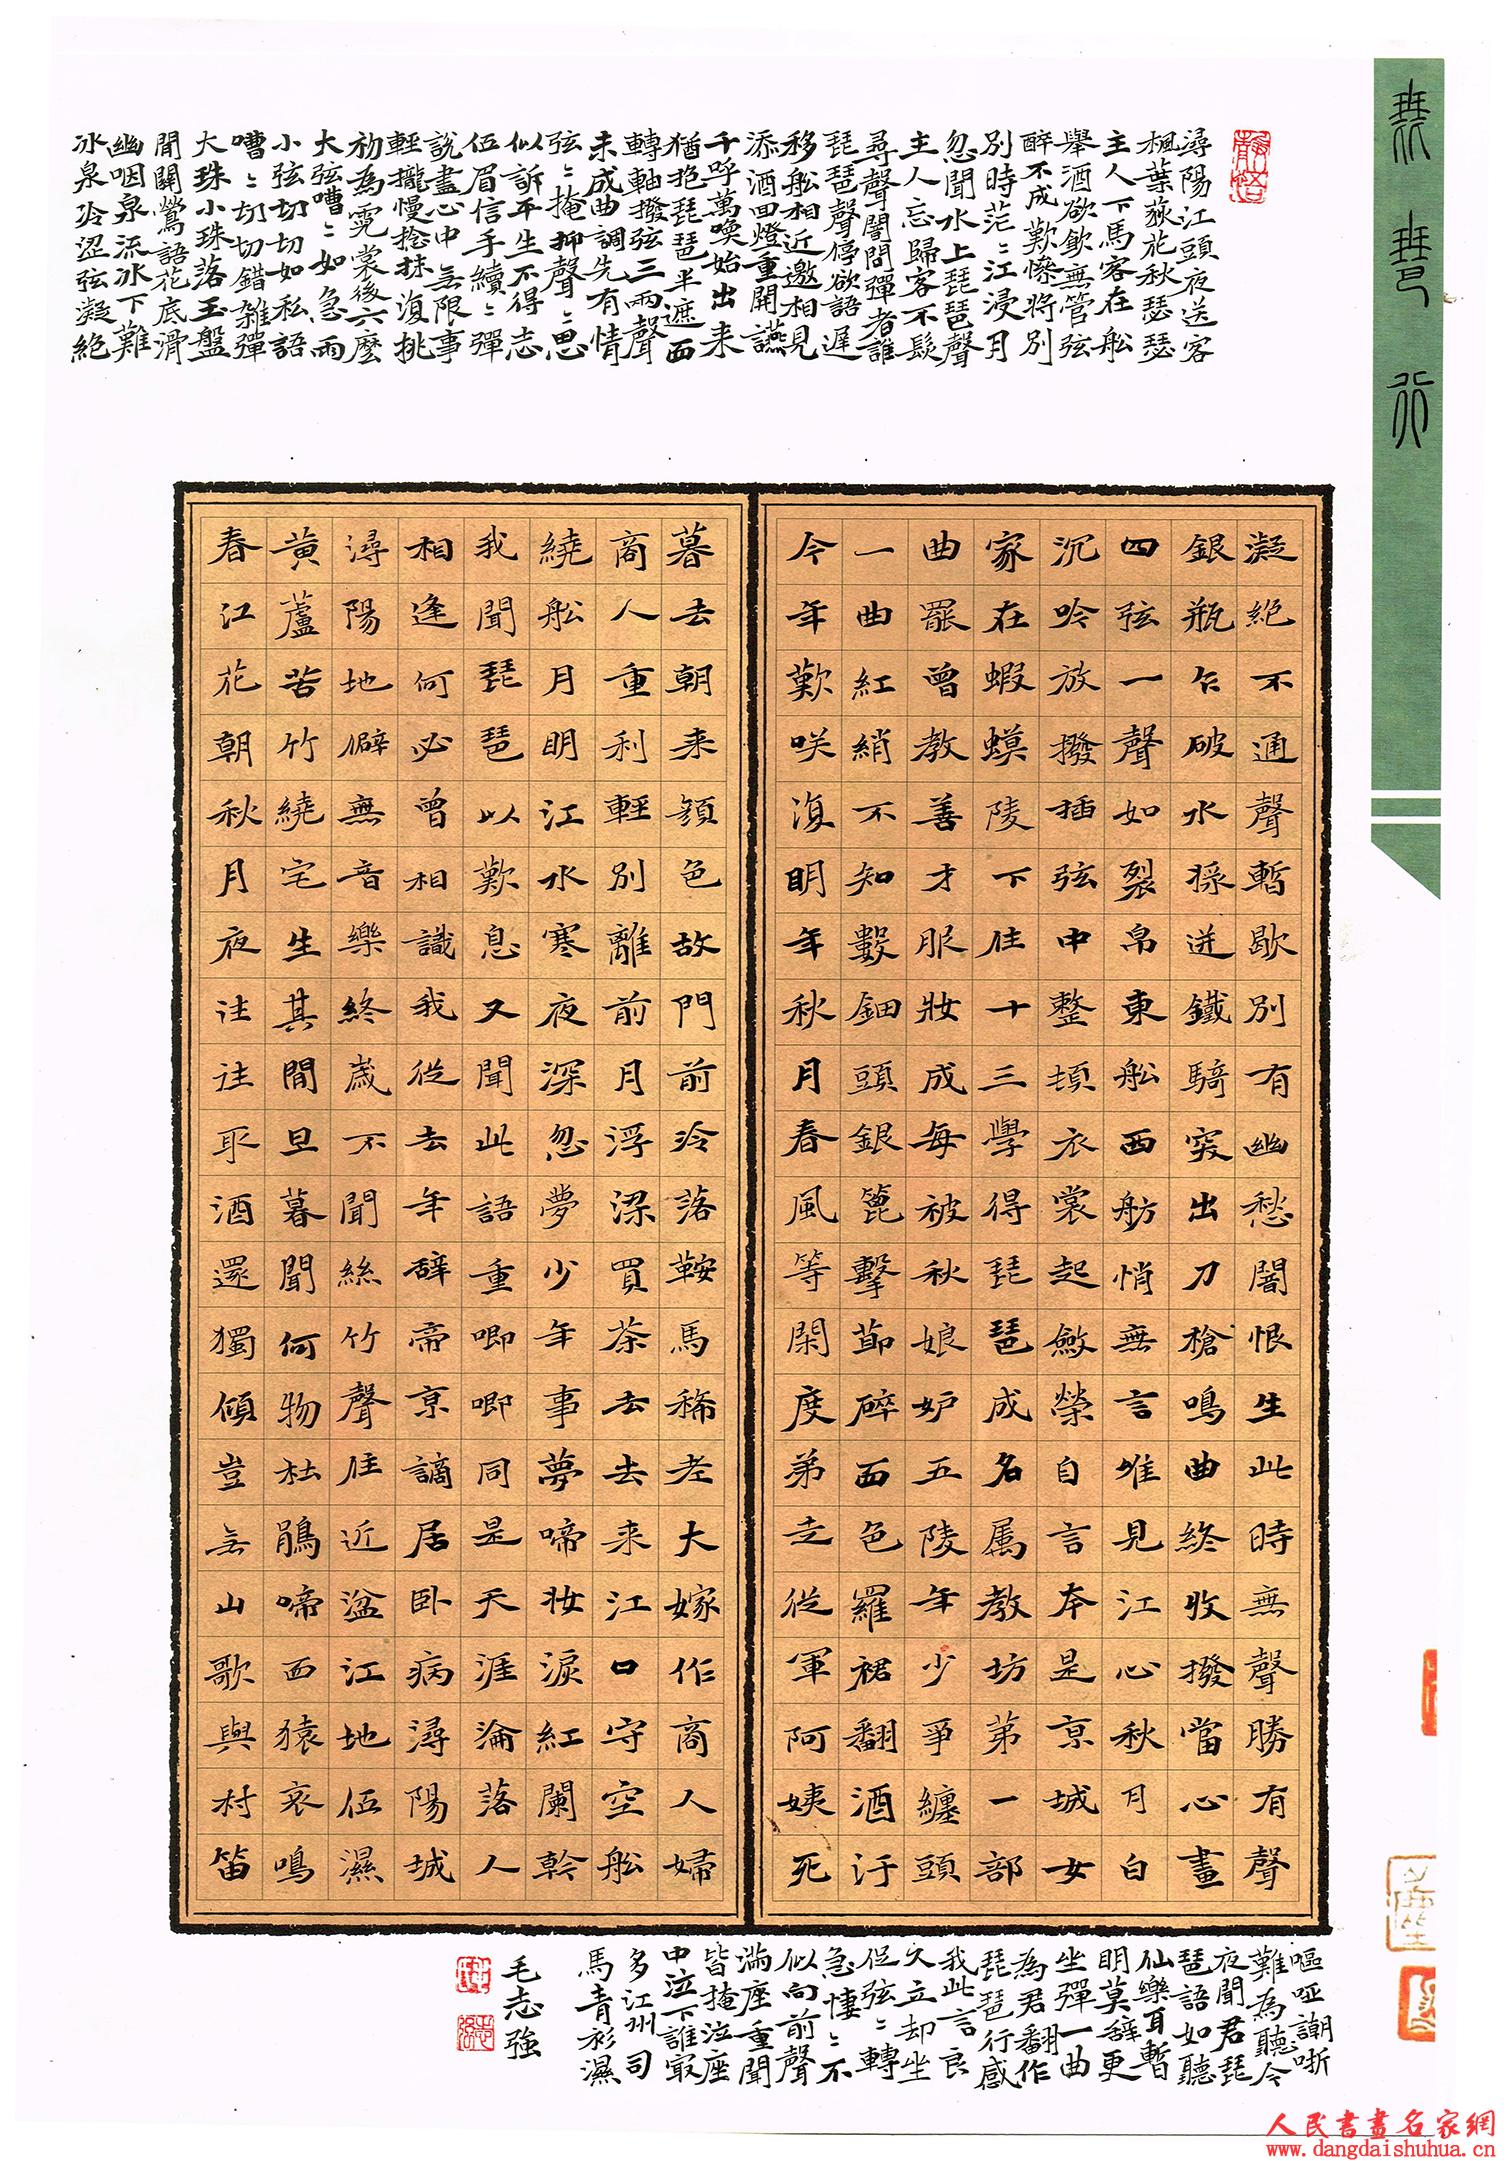 琵琶行
潯陽江頭夜送客
楓葉荻花秋瑟瑟
主人下馬客在船
舉酒欲飲無管弦
醉不成歡慘將別
別時茫〻江浸月
忽聞水上琵琶聲
主人忘歸客不發
尋聲闇問彈者誰
琵琶聲停欲語遲
移船相近邀相見
添酒回燈重開讌
千呼萬喚始出来
猶抱琵琶半遮面
轉軸撥弦三兩聲
未成曲調先有情
弦〻掩抑聲〻思
似訴平生不得志
低眉信手續〻彈
說盡心中無限事
輕攏慢捻抹復挑
初為霓裳後六麼
大弦嘈〻如急雨
小弦切切如私語
嘈〻切切錯雜彈
大珠小珠落玉盤
間關鶯語花底滑
幽咽泉流冰下難
冰泉冷澀弦凝絕
凝絕不通聲暫歇別有幽愁闇恨生此時無聲勝有聲
銀瓶乍破水漿迸鐵騎突出刀槍鳴曲終收撥當心畫
四弦一聲如裂帛東船西舫悄無言唯見江心秋月白
沉吟放撥插弦中整頓衣裳起斂榮自言本是京城女
家在蝦蟆陵下住十三學得琵琶成名属教坊第一部
曲罷曾教善才服妝成每被秋娘妒五陵年少爭纏頭
一曲紅綃不知數鈿頭銀篦擊節碎血色羅裙翻酒汙
今年歡咲復明年秋月春風等閑度弟走從軍阿姨死
暮去朝来顏色故門前冷落鞍馬稀老大嫁作商人婦
商人重利輕別離前月浮梁買茶去去来江口守空船
繞船月明江水寒夜深忽夢少年事夢啼妝淚紅闌幹
我聞琵琶以歎息又聞此語重唧唧同是天涯淪落人
相逢何必曾相識我從去年辭帝京謫居卧病潯陽城
潯陽地僻無音樂終歲不聞絲竹聲住近湓江地低濕
黄蘆苦竹繞宅生其間旦暮聞何物杜鵑啼血猿哀鳴
春江花朝秋月夜往往取酒還獨傾豈无山歌與村笛
嘔啞潮哳
難為聽今
夜聞君琵
琶語如聽
仙樂耳暫
明莫辭更
坐彈一曲
為君翻作
琵琶行感
我此言良
久立却坐
促弦〻轉
急悽〻不
似向前聲
滿座重聞
皆掩泣座
中泣下誰最
多江州司
馬青衫濕
毛志強
人民書畫名家網
www.dangdaishuhua.cn